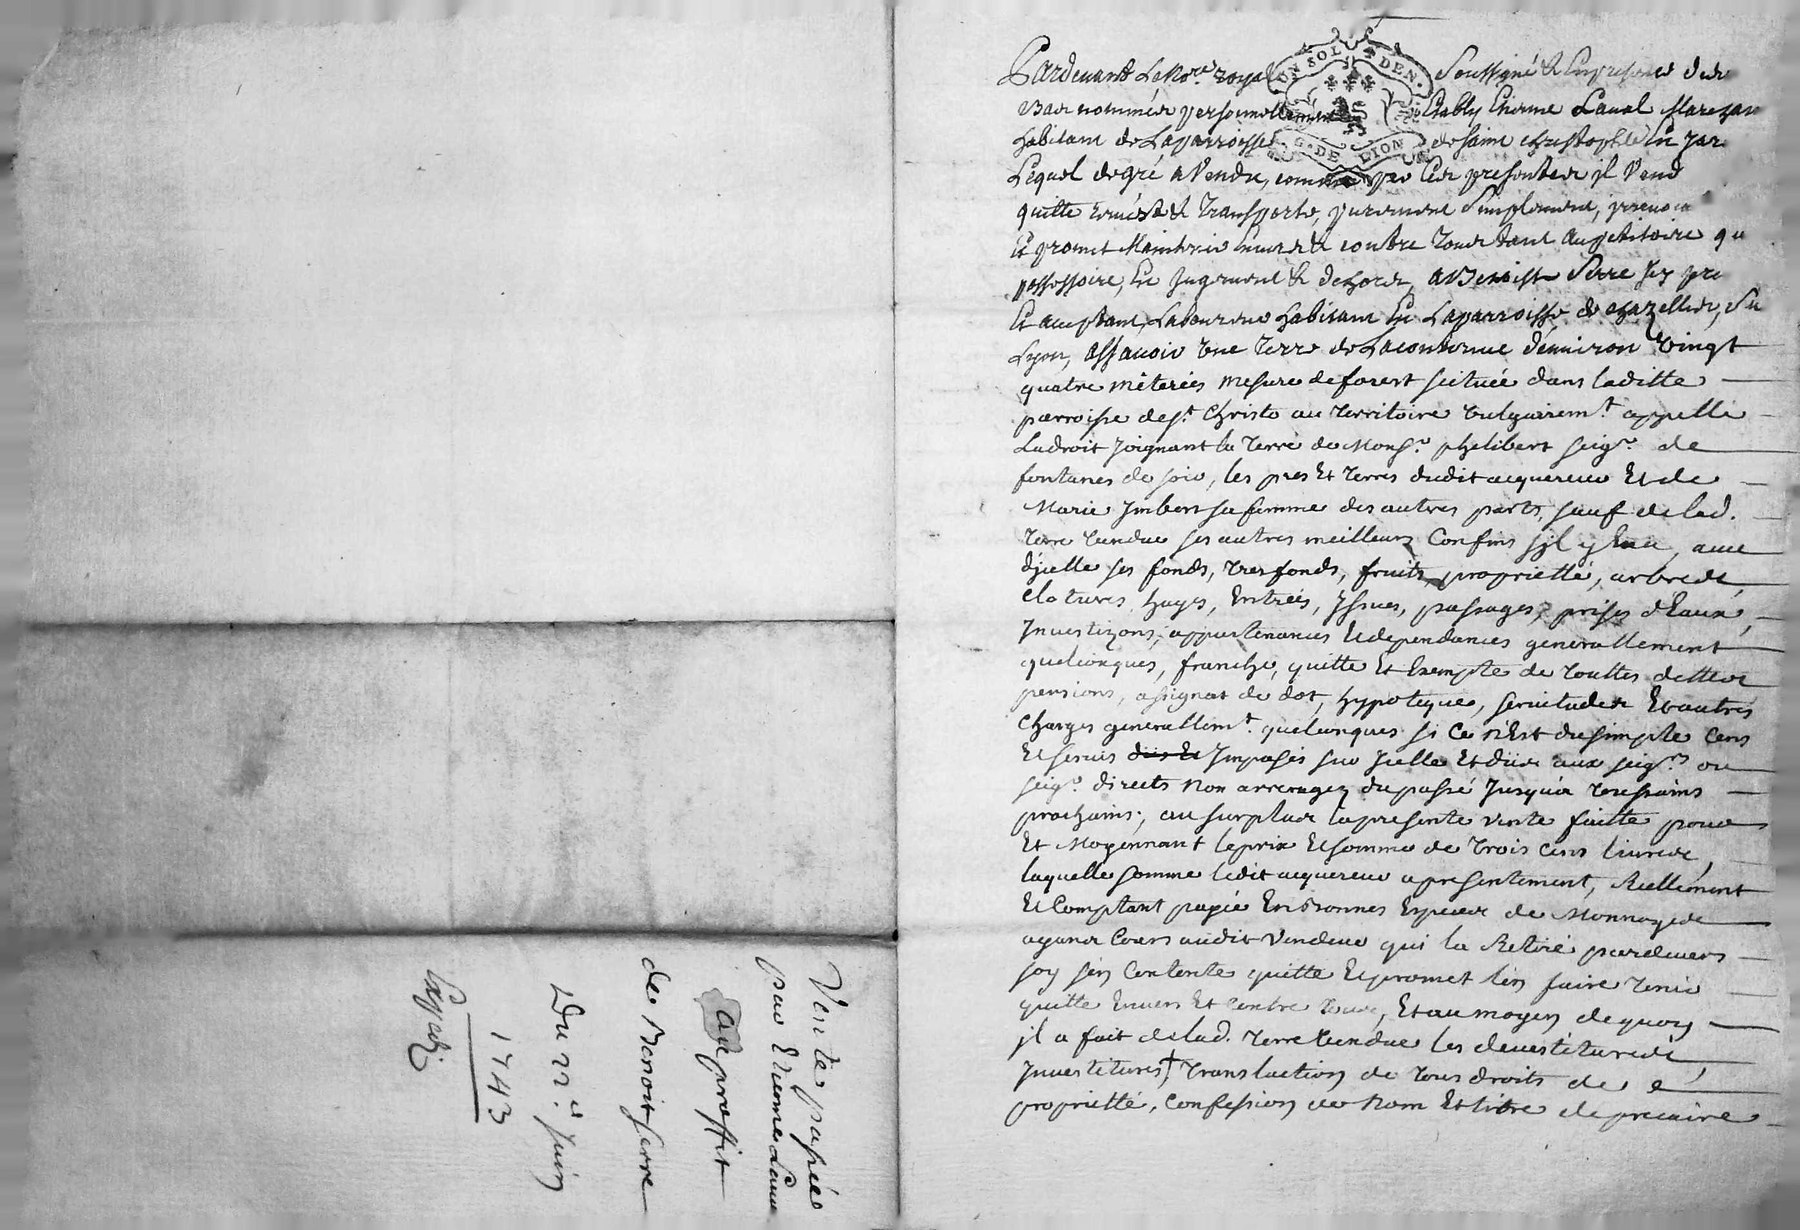 Pardevant Le No.re royal Soussigné & En presence des
Bas nommés personnellement Etably Etienne Laval Marchan
habitant de La parroisse de saint christophle En Jar
Lequel de gré a Vendu, comme par Ces presentes il Vend
quitte remêt & transporte, purement Simplement,
Et promet Maintenir envers & contre tous tant au petitoire qu
possessoire, En Jugement & dehors, a Benoist Serre Icy pre
Et acceptant, Laboureur habitant En La parroisse de chazelles, Su
Lyon, assavoir Une Terre de La contenue d'environ vingt
quatre mêterées mesure de forest scituée dans laditte
parroisse de St. Christo au territoire vulgairemt. appellé
Ladroit joignant la terre de Monsr. philibert seigr. de
fontanes de soir, les pres Et terres dudit acquereur Et de
Marie Jmbert sa femme des autres parts, sauf de lad.
terre vendue ses autres meilleurs Confins s'il y En a, avec
d'jcelle ses fonds, tresfonds, fruits, proprietté, arbres,
clotures, hayes, Entrées, Jssues, passages, prises d'Eaux,
Jnvestizons, appartenances Et dependances generallement
quelconques, franche, quitte Et Exempte de touttes dettes
pensions, assignat de dot, hypoteques, servitudes Et autres
charges generallemt. quelconques si Ce n'Est du simple Cens
Et servis dûs Et Jmposés sur Jcelle Et dûs aux seigrs. ou
seigr. directs Non arreragez du passé Jusqu'a toussaints
prochains; au surplus la presente vente faitte pour
Et Moyennant le prix Et somme de trois Cens livres,
laquelle somme ledit acquereur a presentement, Reellement
Et Comptant payée En bonnes Especes de Monnoye
ayant Cours audit Vendeur qui la Retiré pardevers
soy s'en Contente quitte Et promet l'en faire tenir
quitte Envers Et Contre tous, Et au moyen de quoy
jl a fait de lad. terre vendue les devestitures,
Jnvestitures, † translation de tous droits de
proprietté, Confession de Nom Et titre de precaire
Vente passée
par Etienne Laval
au proffit
de Benoit Serre
Du 22.e Juin
1743
Expedi